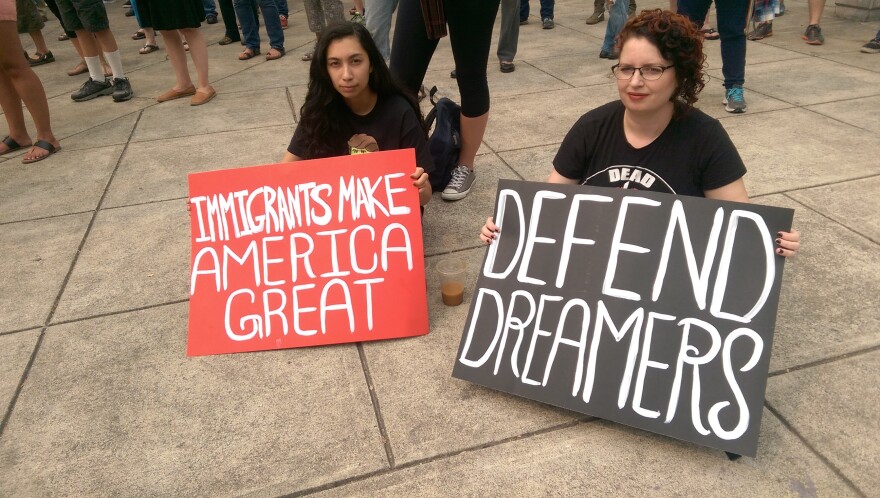 IMMIGRANTS MAKE
AMERICA
GREAT
DEAD
DEFEND
DREAMERS